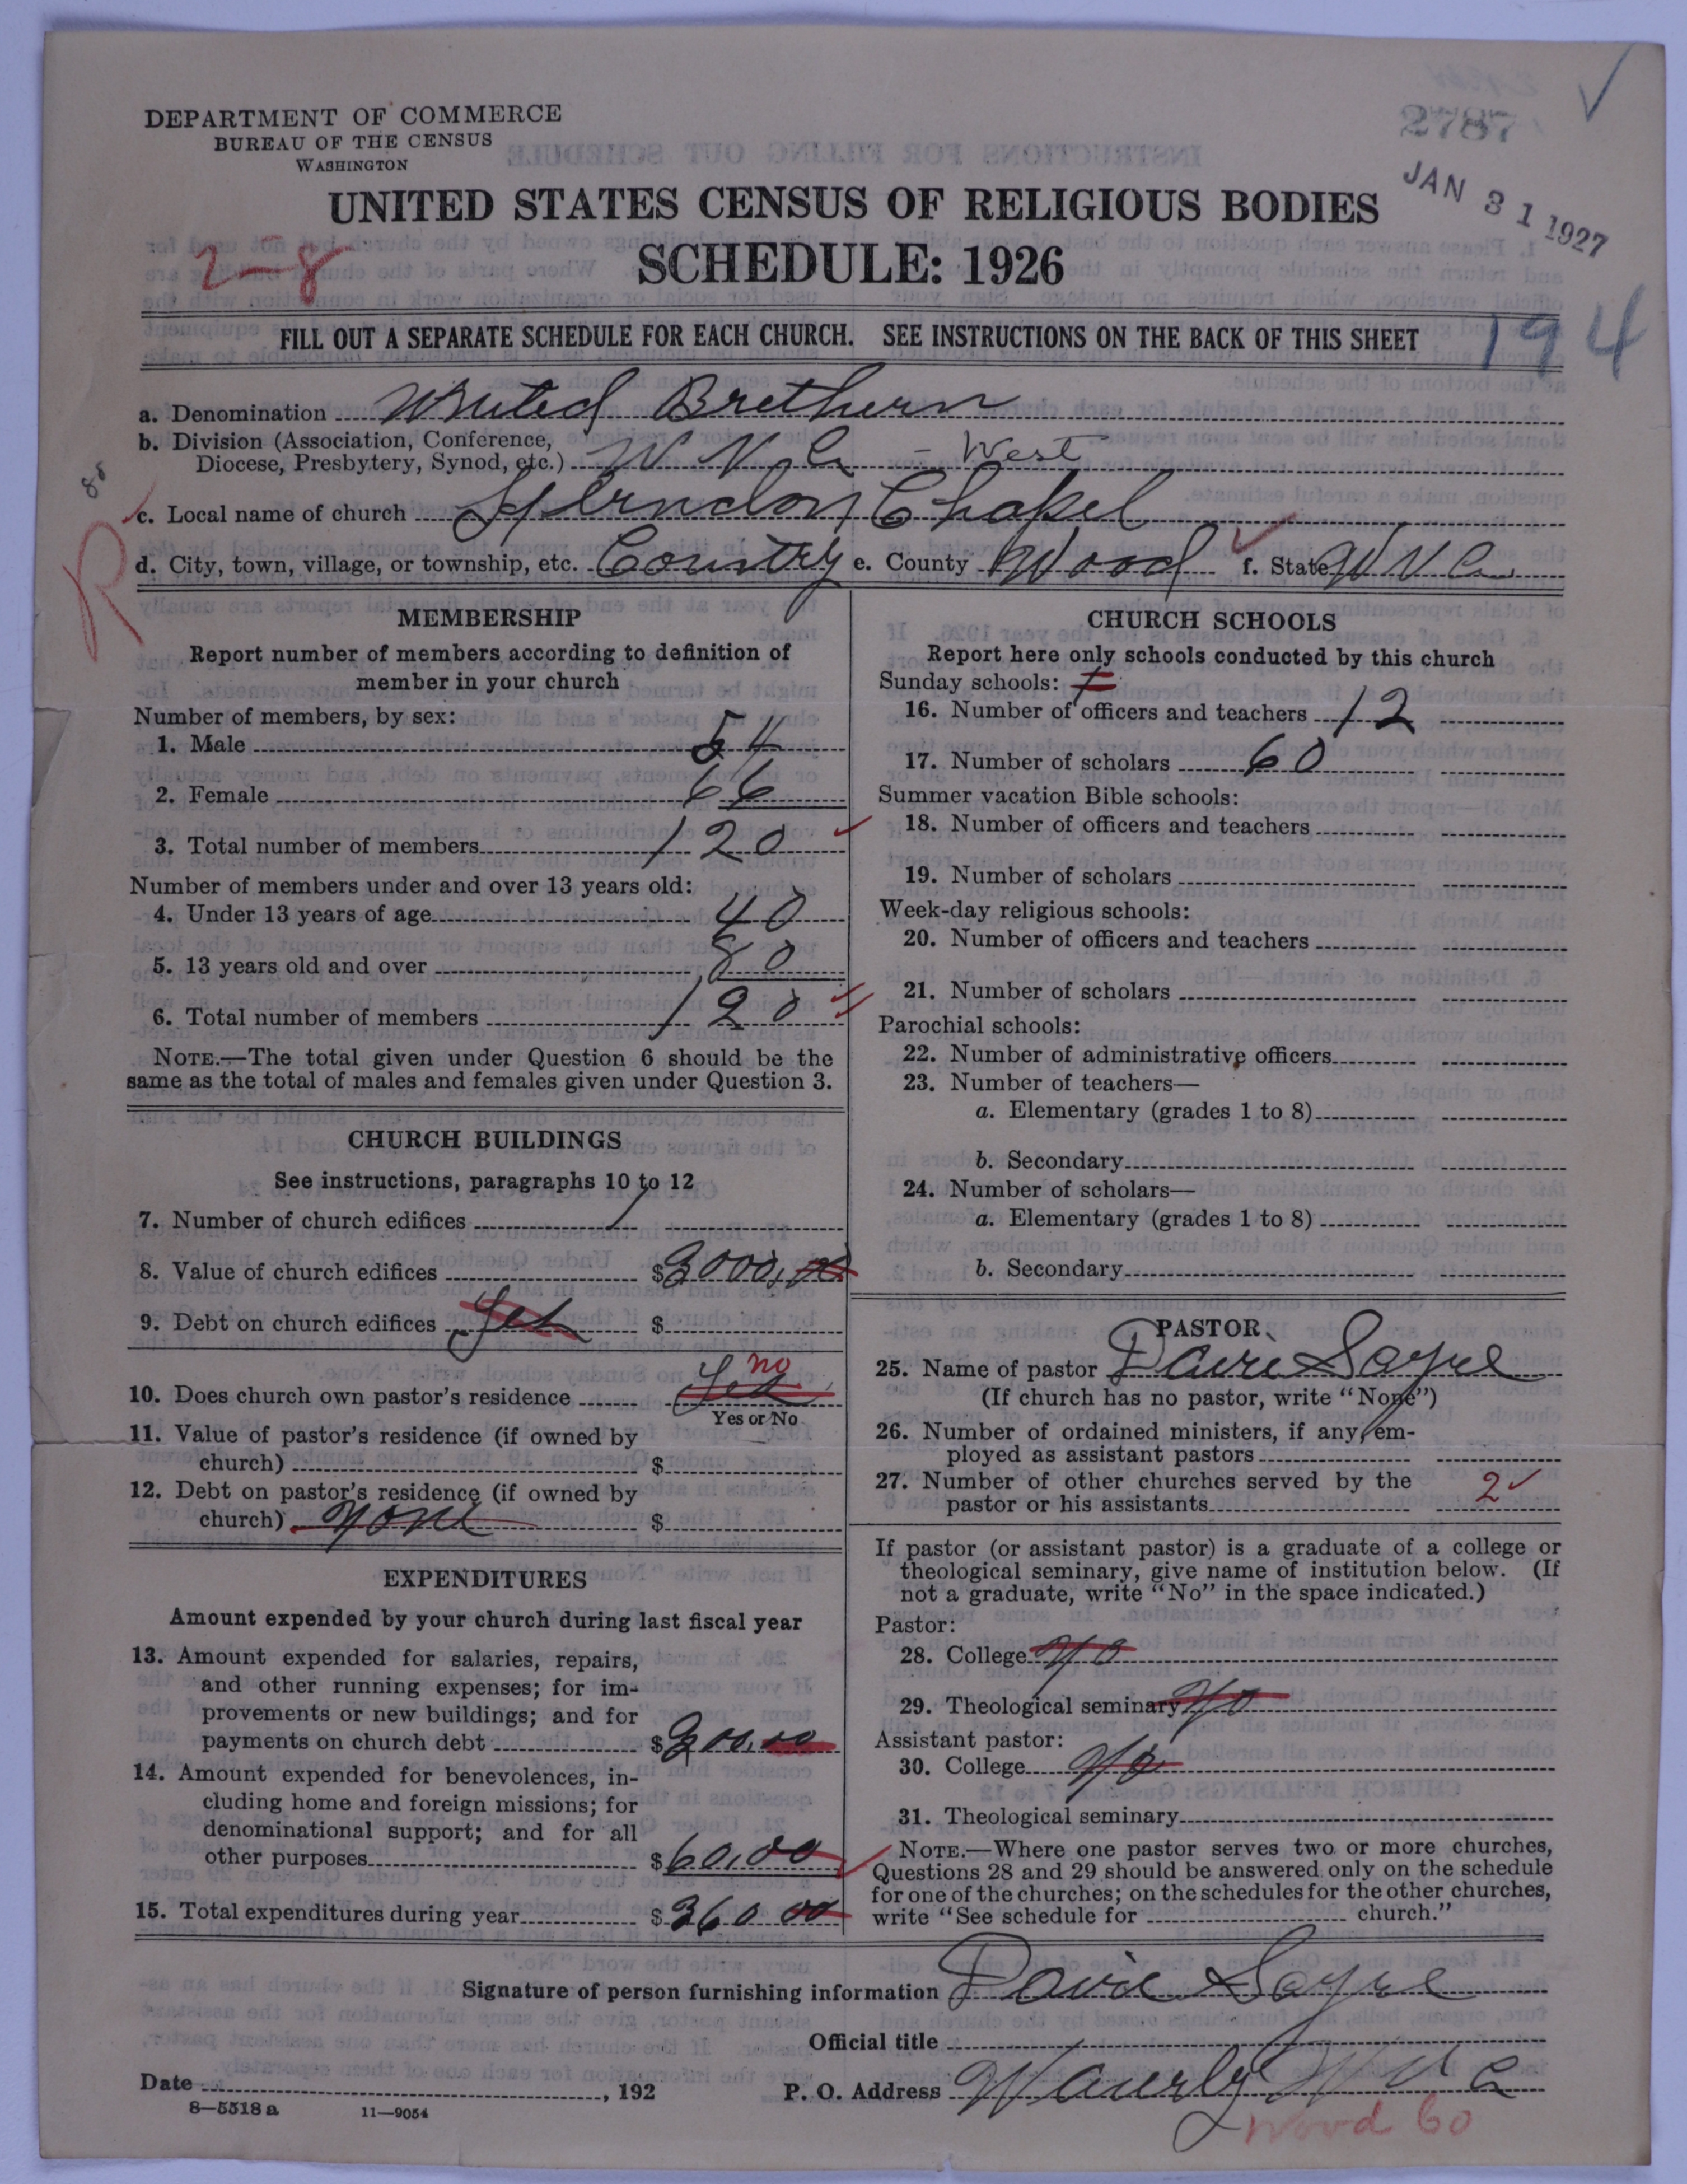 DEPARTMENT OF COMMERCE
BUREAU OF THE CENSUS
WASHINGTON
2787
JAN 31 1927
UNITED STATES CENSUS OF RELIGIOUS BODIES
SCHEDULE: 1926
2-8
FILL OUT A SEPARATE SCHEDULE FOR EACH CHURCH. SEE INSTRUCTIONS ON THE BACK OF THIS SHEET
194
a. Denomination United Brethern
b. Division (Association, Conference,
Diocese, Presbytery, Synod, etc.) W Va - West
c. Local name of church Herndon Chapel
d. City, town, village, or township, etc. Country e. County Wood f. State W Va
R
MEMBERSHIP
Report number of members according to definition of
member in your church
Number of members, by sex:
1. Male 54
2. Female 66
3. Total number of members 120
Number of members under and over 13 years old:
4. Under 13 years of age 40
5. 13 years old and over 80
6. Total number of members 120
NOTE.—The total given under Question 6 should be the
same as the total of males and females given under Question 3.
CHURCH BUILDINGS
See instructions, paragraphs 10 to 12
7. Number of church edifices 1
8. Value of church edifices $3000,00
9. Debt on church edifices Yes $
10. Does church own pastor's residence Yes no
Yes or No
11. Value of pastor's residence (if owned by
church) $
12. Debt on pastor's residence (if owned by
church) None $
EXPENDITURES
Amount expended by your church during last fiscal year
13. Amount expended for salaries, repairs,
and other running expenses; for im-
provements or new buildings; and for
payments on church debt $300,00
14. Amount expended for benevolences, in-
cluding home and foreign missions; for
denominational support; and for all
other purposes $60,00
15. Total expenditures during year $360 00
CHURCH SCHOOLS
Report here only schools conducted by this church
Sunday schools:
16. Number of officers and teachers 12
17. Number of scholars 60
Summer vacation Bible schools:
18. Number of officers and teachers
19. Number of scholars
Week-day religious schools:
20. Number of officers and teachers
21. Number of scholars
Parochial schools:
22. Number of administrative officers
23. Number of teachers—
a. Elementary (grades 1 to 8)
b. Secondary
24. Number of scholars—
a. Elementary (grades 1 to 8)
b. Secondary
PASTOR
25. Name of pastor Davie Sayre
(If church has no pastor, write "None")
26. Number of ordained ministers, if any, em-
ployed as assistant pastors
27. Number of other churches served by the
pastor or his assistants 2
If pastor (or assistant pastor) is a graduate of a college or
theological seminary, give name of institution below. (If
not a graduate, write "No" in the space indicated.)
Pastor:
28. College No
29. Theological seminary No
Assistant pastor:
30. College No
31. Theological seminary
NOTE.—Where one pastor serves two or more churches,
Questions 28 and 29 should be answered only on the schedule
for one of the churches; on the schedules for the other churches,
write "See schedule for church."
Signature of person furnishing information Davie Sayre
Official title
Date , 192
P. O. Address Waverly W Va
8—5518 a 11—9054
Wood 60